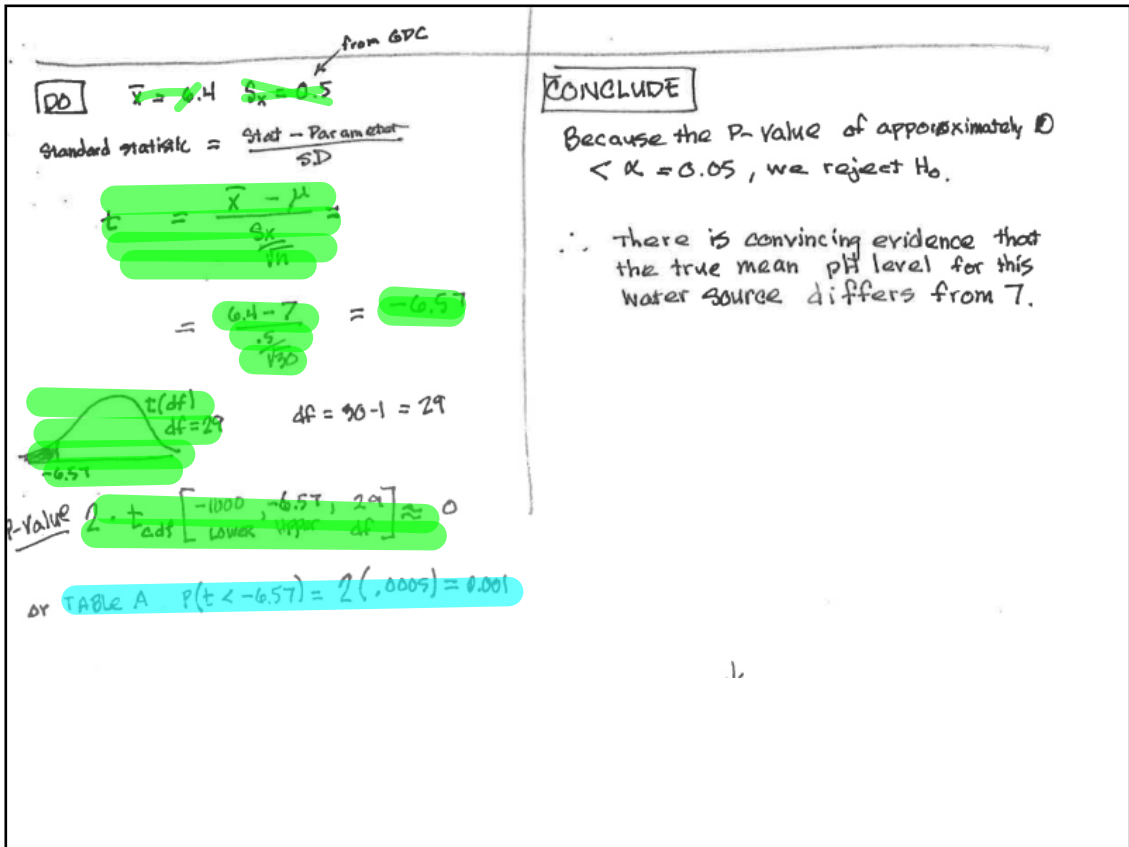 from GDC
DO x̄ = 6.4 Sx = 0.5
Standard statistic = Stat - Parameter / SD
t = x̄ - μ / Sx/√n =
= 6.4 - 7 / .5/√30 = -6.57
t(df)
df = 29
df = 30-1 = 29
-6.57
P-value 2 · tcdf [-1000, -6.57, 29] ≈ 0
Lower Upper df
or TABLE A P(t < -6.57) = 2(.0005) = 0.001
CONCLUDE
Because the P-value of approximately 0
< α = 0.05, we reject H₀.
∴ There is convincing evidence that
the true mean pH level for this
water source differs from 7.